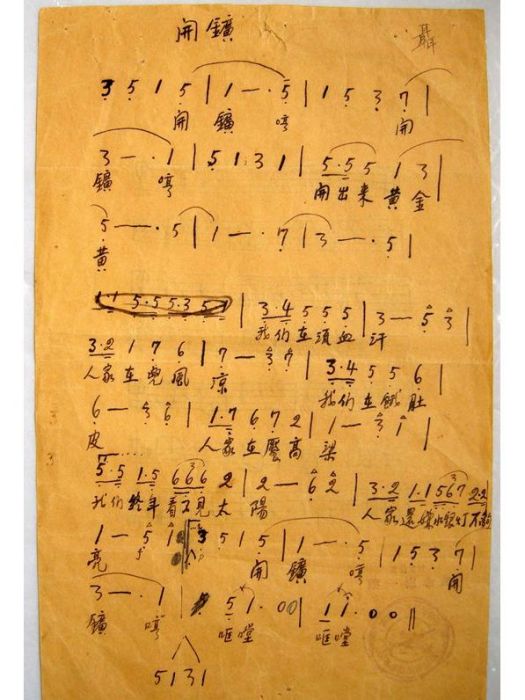 開鑛 聶
3 5 1 5 | 1 — · 5 | 1 5 3 7 |
開 鑛 哼 開
3 — · 1 | 5 1 3 1 | 5·5 5 1 3 |
鑛 哼 開出來 黄 金
5 — · 5 | 1 — · 7 | 3 — · 5 |
黄
1 1 5·5 5·3 5 1 | 3·4 5 5 5 | 3 — 5 3 |
我们在須血 汗
3·2 1 7 6 | 7 — 3 7 | 3·4 5 5 6 |
人家在兜風 凉 我们在餓肚
6 — 3 6 | 1·7 6 7 2 | 1 — 3 1 |
皮 人家在壓高 梁
5·5 1·5 6 6 6 2 | 2 — 6 2 | 3·2 1·1 5 6 7 2·2
我们終年看不見太 陽 人家還嫌水銀灯不夠
1 — 5 1 | 3 5 1 5 | 1 — · 5 | 1 5 3 7 |
亮 開 鑛 哼 開
3 — · 1 | 5 1 · 0 0 | 1 1 · 0 0 ||
鑛 哼 哐嘡 哐嘡
5 1 3 1